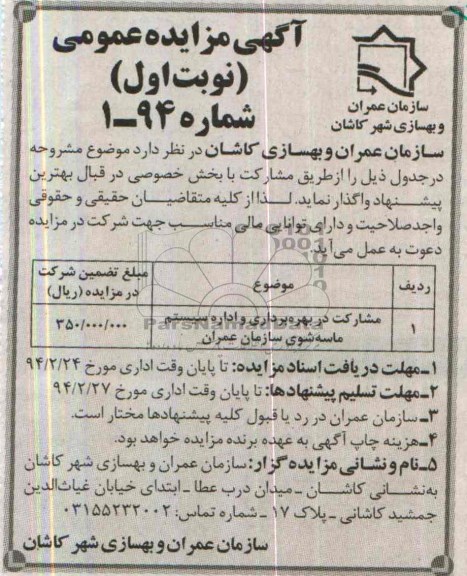 آگهی مزایده عمومی
(نوبت اول)
شماره ۹۴-۱
سازمان عمران
و بهسازی شهر کاشان
سازمان عمران و بهسازی کاشان در نظر دارد موضوع مشروحه
در جدول ذیل را از طریق مشارکت با بخش خصوصی در قبال بهترین
پیشنهاد واگذار نماید. لذا از کلیه متقاضیان حقیقی و حقوقی
واجد صلاحیت و دارای توانایی مالی مناسب جهت شرکت در مزایده
دعوت به عمل می‌آید.
ردیف موضوع مبلغ تضمین شرکت
در مزایده (ریال)
۱ مشارکت در بهره‌برداری و اداره سیستم ۳۵۰/۰۰۰/۰۰۰
ماسه‌شوی سازمان عمران
ParsNamadData
۱ـ مهلت دریافت اسناد مزایده: تا پایان وقت اداری مورخ ۹۴/۲/۲۴
۲ـ مهلت تسلیم پیشنهادها: تا پایان وقت اداری مورخ ۹۴/۲/۲۷
۳ـ سازمان عمران در رد یا قبول کلیه پیشنهادها مختار است.
۴ـ هزینه چاپ آگهی به عهده برنده مزایده خواهد بود.
۵ـ نام و نشانی مزایده گزار: سازمان عمران و بهسازی شهر کاشان
به‌نشانی کاشان ـ میدان درب عطا ـ ابتدای خیابان غیاث‌الدین
جمشید کاشانی ـ پلاک ۱۷ ـ شماره تماس: ۰۳۱۵۵۲۳۲۰۰۲
سازمان عمران و بهسازی شهر کاشان